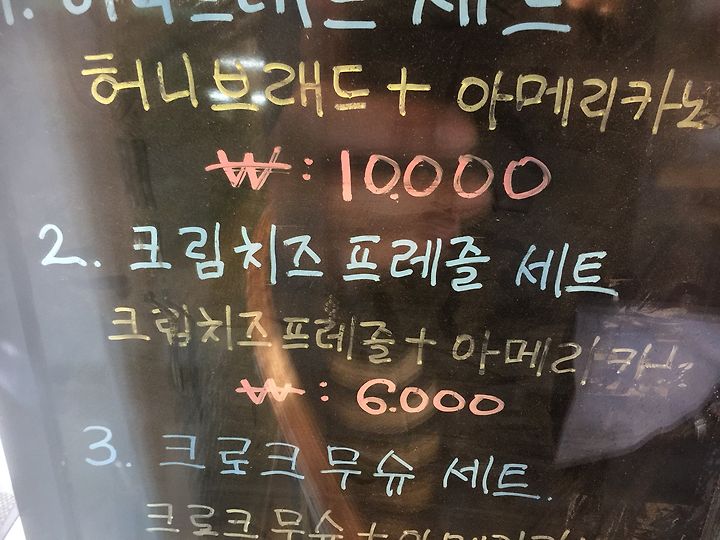 1. 허니브래드 세트
허니브래드 + 아메리카노
₩ : 10.000
2. 크림치즈 프레즐 세트
크림치즈프레즐 + 아메리카노
₩ : 6.000
3. 크로크무슈 세트.
크로크무슈 + 아메리카노